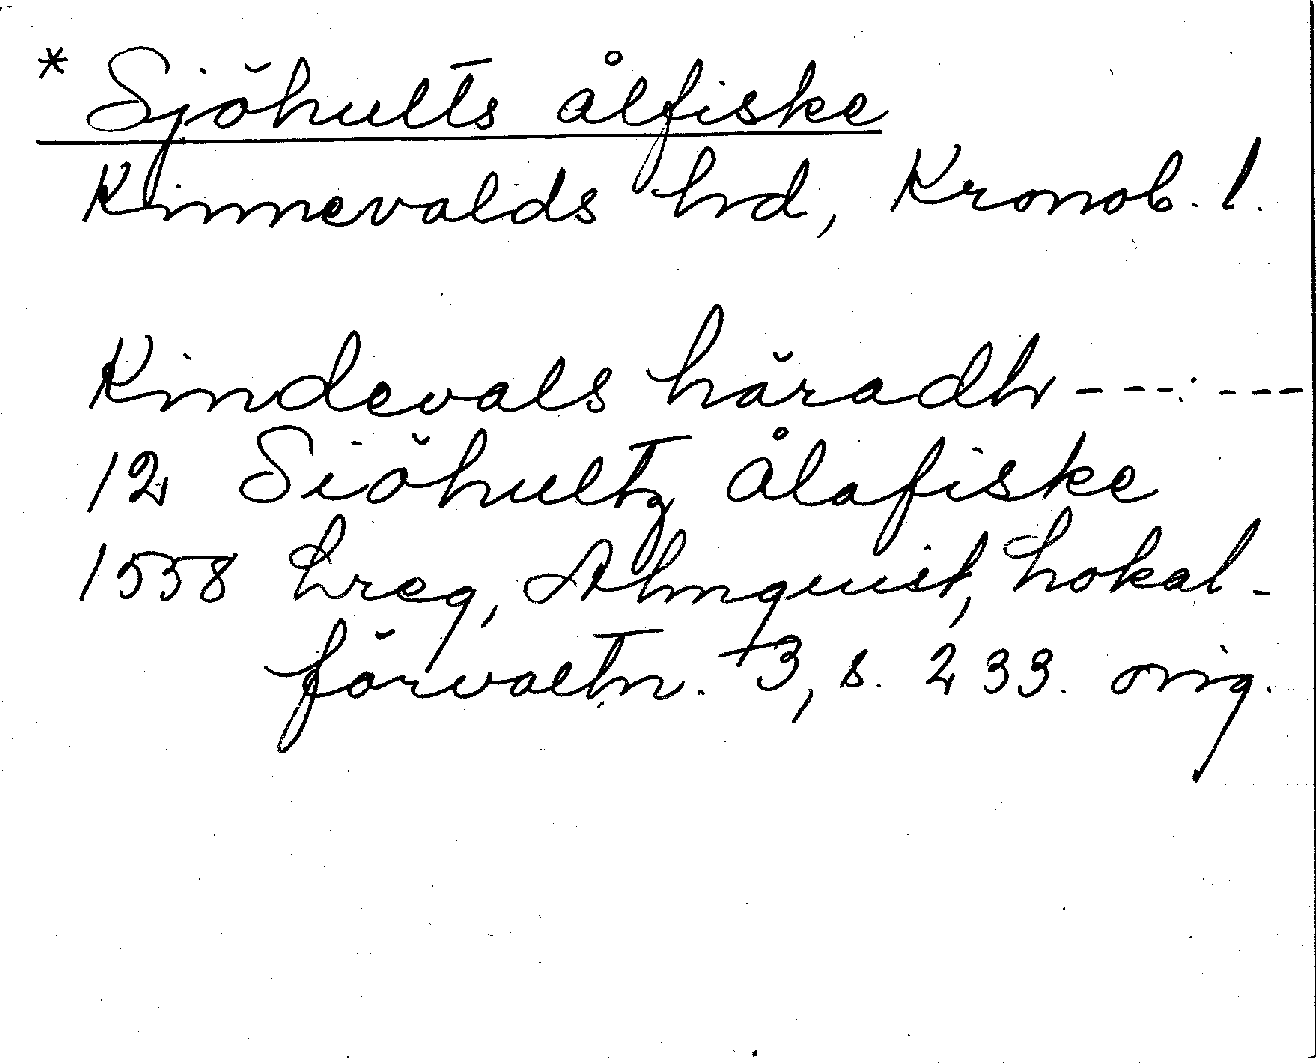 * Sjöhults ålfiske
Kinnevalds hd, Kronob. l.
Kindevals häradh - - - : - - -
12 Siöhultz ålafiske
1558 Lreg, Almquist, Lokal-
förvaltn. 3, s. 233. orig.